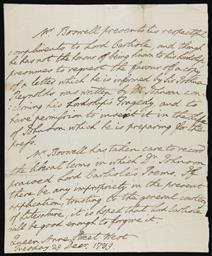 Mr. Boswell presents his respectful
compliments to Lord Carlisle, and though
he has not the honour of being known to his Lordship
presumes to request the favour of a copy
of a letter which he is informed by Sir Joshua
Reynolds was written by Dr. Johnson con
cerning his Lordship's Tragedy and to
have permission to insert it in the Life
of Johnson which he is preparing for the
press.
Mr. Boswell has taken care to record
the liberal terms in which Dr. Johnson
praised Lord Carlisle's Poems. If
there be any impropriety in the present
application, trusting to the general courtesy
of literature, it is hoped that Lord Carlisle
will be good enough to forgive it.
Queen Anne Street West
Tuesday 29 Dec. 1789